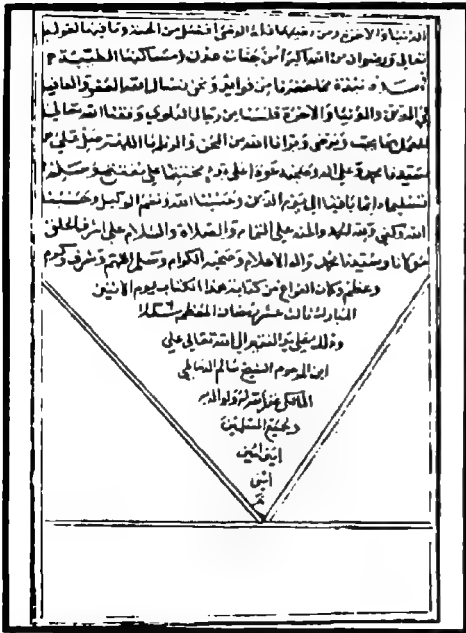 الدنيا والاخرة ومن رضيهما فان الرضى افضل من الجنة وما فيها لقوله
تعالى ورضوان من الله اكبر اي من جنات عدن ومساكنها الطيبة
نبذة مما حضرنا من فوايد ونحن نسال الله العفو والعافية
في الدين والدنيا والاخرة فلسنا من رجال البلوى وفقنا الله تعالى
للعمل بما يحب ويرضى الله من المحن اللهم صل على
سيدنا محمد وعلى اله وصحبه
تسليما دايما باقيا الى يوم الدين وحسبنا الله ونعم الوكيل وحسبنا
الله وكفى ولله الحمد والمنه على التمام والصلاة والسلام على اشرف الخلق
مولانا وسيدنا محمد واله الاعلام وصحبه الكرام وصلى اللهم وشرف وكرم
وعظم وكان الفراغ من كتابة هذا الكتاب يوم الاثنين
المبارك ثالث عشر رمضان المعظم
وذلك على يد الفقير الى الله تعالى علي
ابن المرحوم الشيخ سالم
المالكي غفر الله له ولوالديه
ولجميع المسلمين
امين امين
امين
تم